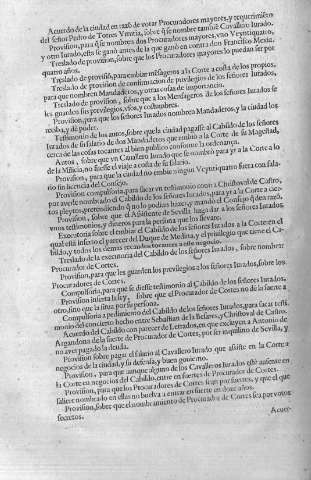 Acuerdo de la ciudad en razõ de votar Procuradores mayores, y requerimiẽto
del señor Pedro de Torres Ynezia, sobre q̃ se nombre tambiẽ Cavallero Iurado.
Provision, para q̃ se nombren dos Procuradores mayores, vno Veyntiquatro,
y otro Iurado, esta se ganò antes de la que ganò en contra don Francisco Mexia.
Treslado de provision, sobre que los Procuradores mayores lo puedan ser por
quatro años.
Treslado de provisiõ, para embiar mẽsageros a la Corte a costa de los propios.
Treslado de provision de confirmacion de privilegios de los señores Iurados,
para que nombren Mandaderos, y otras cosas de importancia.
Treslado de provision, sobre que a los Mensageros de los señores Iurados se
les guarden sus previlegios, vsos, y costumbres.
Provision, para que los señores Iurados nombren Mandaderos, y la ciudad los
reciba, y dè poder.
Testimonio de los autos, sobre que la ciudad pagasse al Cabildo de los señores
Iurados de su salario de dos Mandaderos que embiò a la Corte de su Magestad,
cerca de las cosas tocantes al bien publico conforme la ordenança.
Autos, sobre que vn Cavallero Iurado que se nombrò para yr a la Corte a lo
de la Milicia, no fuesse el viaje a costa de su salario.
Provision, para que la ciudad no embie ningun Veyntiquatro fuera con salario
sin licencia del Consejo.
Provision compulsoria, para sacar vn testimonio contra Christoval de Castro,
por averle nombrado el Cabildo de los señores Iurados, para yr a la Corte a ciertos
pleytos, pretendiendo q̃ no lo podian hazer, y mandò el Consejo q̃ diesse razõ.
Provision, sobre que el Assistente de Sevilla haga dar a los señores Iurados
vnos testimonios, y dineros para la persona que los llevare.
Executoria sobre el embiar el Cabildo de los señores Iurados a la Corte en el
qual està inserto el parecer del Duque de Medina, y el privilegio que tiene el Cabildo,
y todos los demas recaudos tocantes a este negocio.
Treslado de la executoria del Cabildo de los señores Iurados, sobre nombrar
Procurador de Cortes.
Provision, para que les guarden los previlegios a los señores Iurados, sobre los
Procuradores de Cortes.
Compulsoria, para que se diesse testimonio al Cabildo de los señores Iurados.
Provision inserta la ley, sobre que el Procurador de Cortes no dè la suerte a
otro, sino que la sirva por su persona.
Compulsoria a pedimiento del Cabildo de los señores Iurados, para sacar testimonio
del concierto hecho entre Sebastian de la Bezares, y Christoval de Castro.
Acuerdo del Cabildo con parecer de Letrados, en que excluyen a Antonio de
Argandona de la suerte de Procurador de Cortes, por ser inquilino de Sevilla, y
no aver pagado la deuda.
Provision sobre pagar el salario al Cavallero Iurado que assiste en la Corte a
negocios de la ciudad, y su defensa, y buen govierno.
Provision, para que aunque alguno de los Cavalleros Iurados estè ausente en
la Corte en negocios del Cabildo, entre en suertes de Procurador de Cortes.
Provision, para que los Procuradores de Cortes sean por suertes, y que el que
saliere nombrado en ellas no buelva a entrar en suerte en doze años.
Provision, sobre que el nombramiento de Procurador de Cortes sea por votos
secretos.
Acuer-